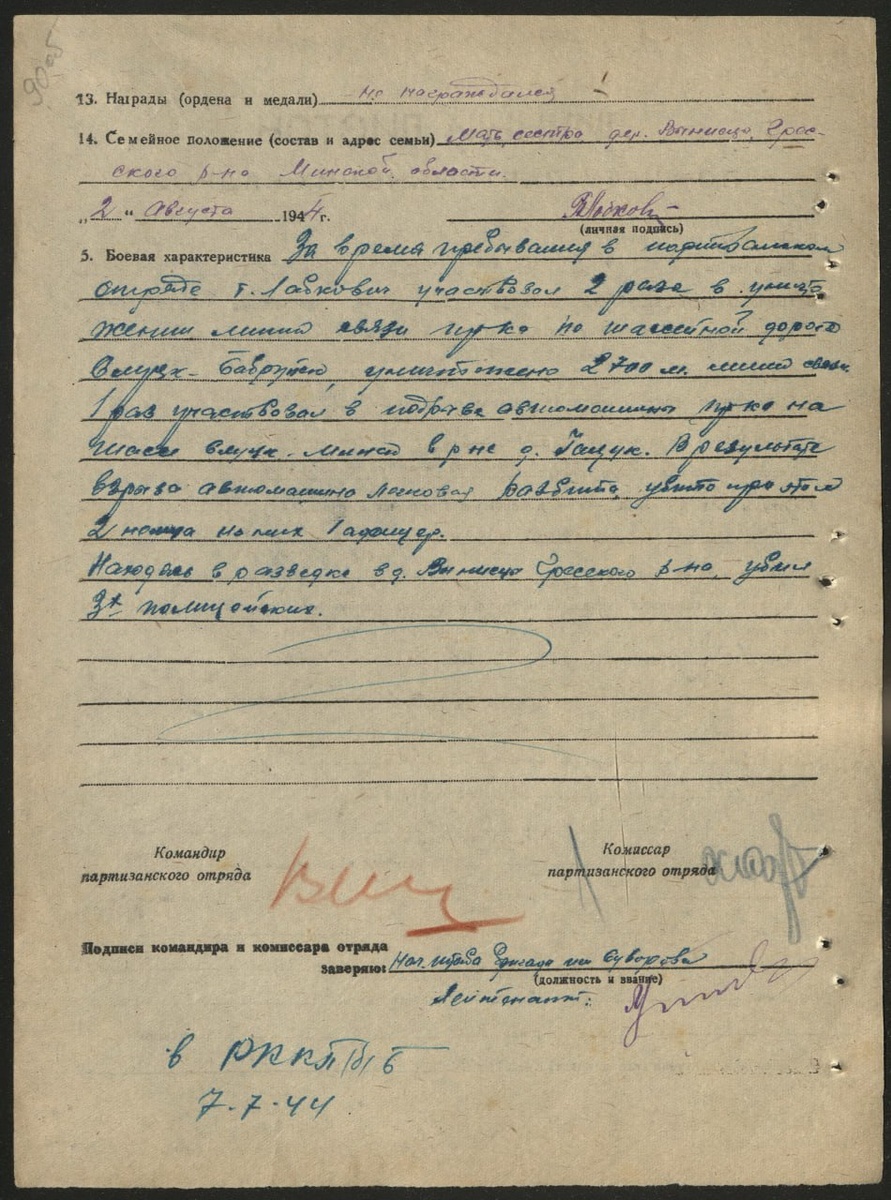 13. Награды (ордена и медали) не награждался
14. Семейное положение (состав и адрес семьи) Мать, сестра, дер. Вынисцы, Грес-
ского р-на Минской области.
„2“ Августа 1944 г.
(личная подпись)
5. Боевая характеристика За время пребывания в партизанском
отряде т. Лабкович участвовал 2 раза в уничто
жении линии связи пр-ка по шассейной дороге
Слуцк-Бабруйск, уничтожено 2700 м. линии связи.
1 раз участвовал в подрыве автомашины пр-ка на
шассе Слуцк-Минск в р-не д. Гацук. В результате
взрыва автомашина легковая разбита, убито при этом
2 немца из них 1 афицер.
Находясь в разведке в д. Вынисцы Гресского р-на, убил
3х полицейских.
Командир
партизанского отряда
Комиссар
партизанского отряда
Подписи командира и комиссара отряда
заверяю: Нач. штаба бригады им Суворова
(должность и звание)
Лейтенант:
в РККП(б)Б
7.7.44